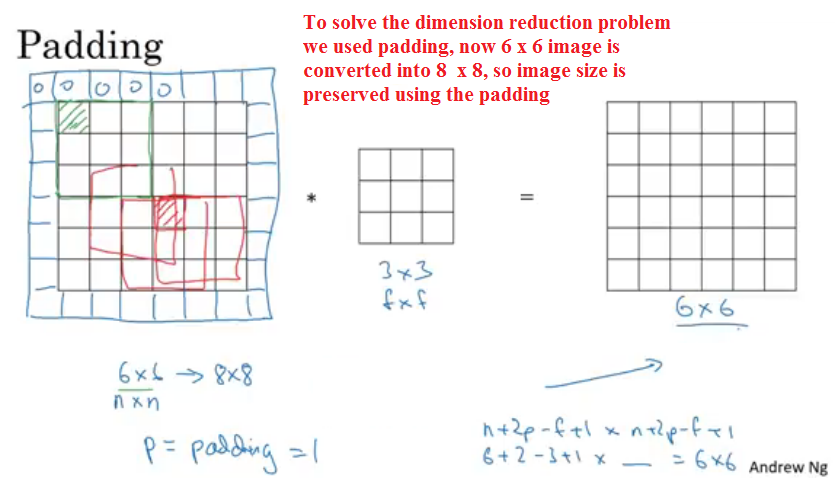 Padding
To solve the dimension reduction problem
we used padding, now 6 x 6 image is
converted into 8 x 8, so image size is
preserved using the padding
0 0 0 0 0
*
=
3×3
f×f
6×6
6×6 → 8×8
n×n
p = padding = 1
n+2p-f+1 × n+2p-f+1
6+2-3+1 × __ = 6×6
Andrew Ng